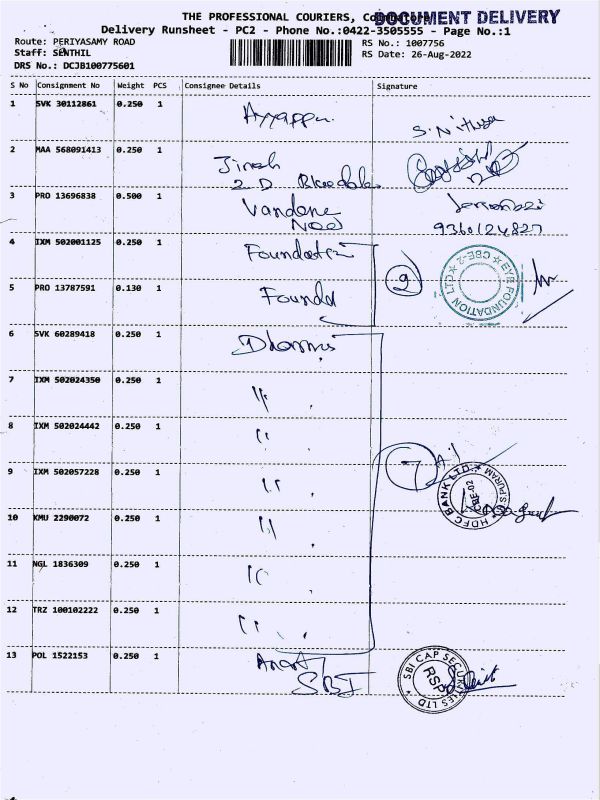 THE PROFESSIONAL COURIERS, Coimbatore
DOCUMENT DELIVERY
Delivery Runsheet - PC2 - Phone No.:0422-3505555 - Page No.:1
Route: PERIYASAMY ROAD
Staff: SENTHIL
DRS No.: DCJB100775601
RS No.: 1007756
RS Date: 26-Aug-2022
S No Consignment No Weight PCS Consignee Details Signature
1 SVK 30112861 0.250 1 Ayyappu. S.Nithya
2 MAA 568091413 0.250 1 Jinesh
2 D
3 PRO 13696838 0.500 1 Vandana
9360124827
4 IXM 502001125 0.250 1 Foundation 2 EYE FOUNDATION LTD ★ CBE-2 ★
5 PRO 13787591 0.130 1 Founda
6 SVK 60289418 0.250 1
7 IXM 502024350 0.250 1 "
8 IXM 502024442 0.250 1 "
7
9 IXM 502057228 0.250 1 " HDFC BANK LTD. ★ R.S PURAM ★ CBE-02
10 KMU 2290072 0.250 1 "
11 NGL 1836309 0.250 1 "
12 TRZ 100102222 0.250 1 "
13 POL 1522153 0.250 1 SBI SBI CAP SECURITIES LTD RSP